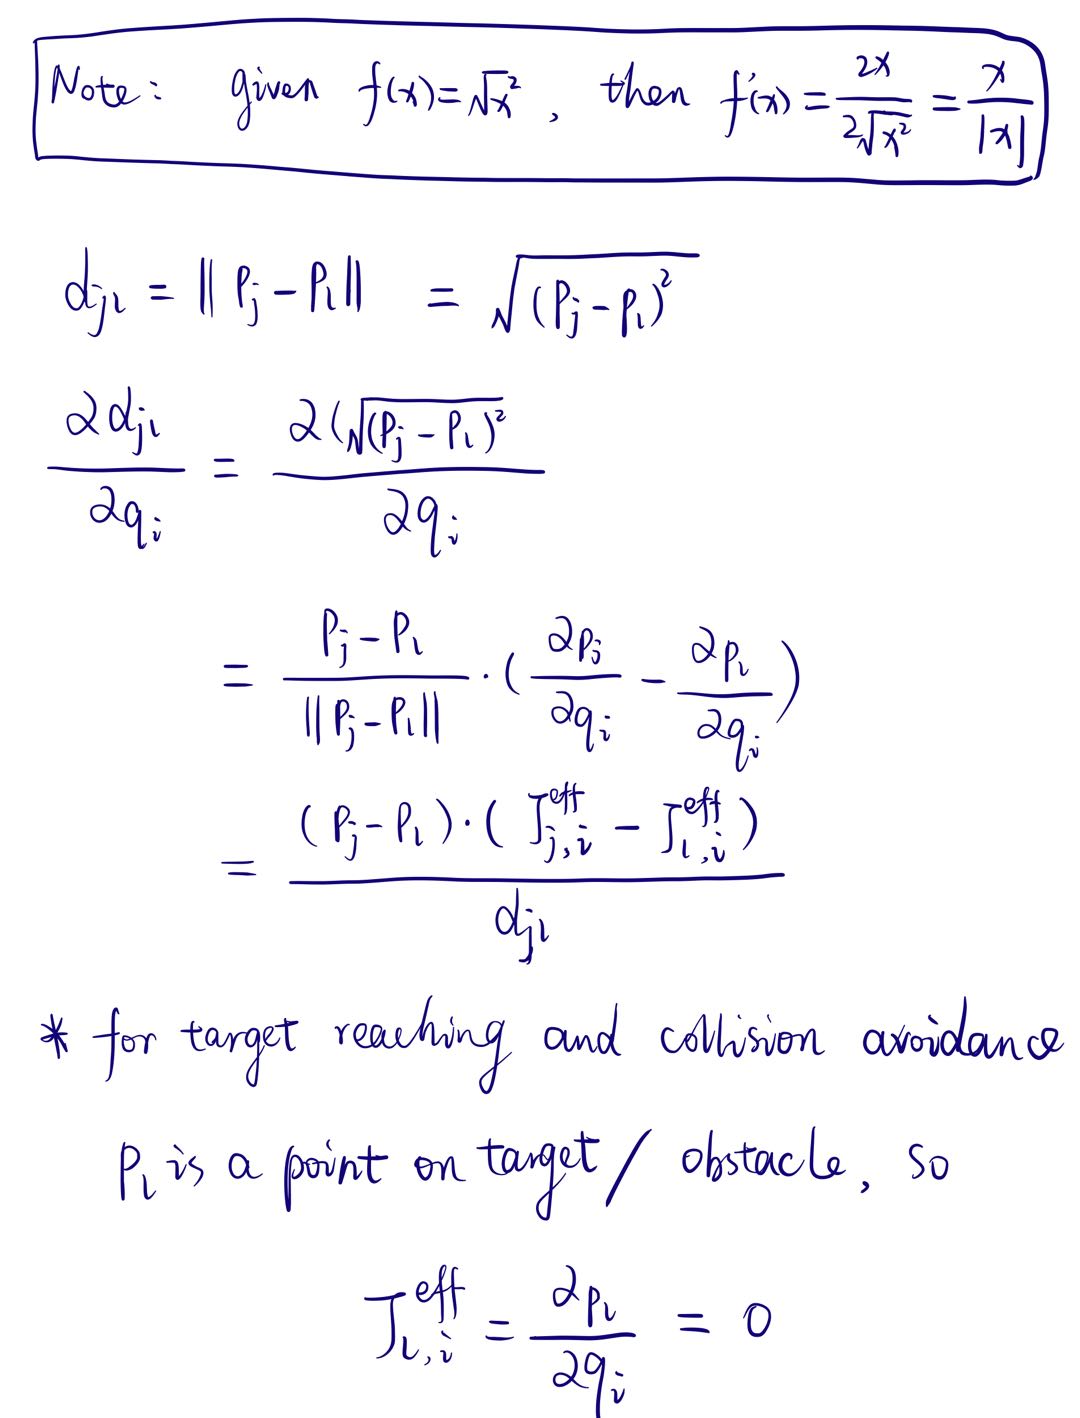 Note: given f(x)=√x², then f'(x) = 2x / 2√x² = x / |x|
d_jl = ‖P_j − P_l‖ = √(P_j − P_l)²
∂d_jl / ∂q_i = ∂(√(P_j − P_l)² / ∂q_i
= P_j − P_l / ‖P_j − P_l‖ · (∂P_j / ∂q_i − ∂P_l / ∂q_i)
= (P_j − P_l) · (J_j,i^eff − J_l,i^eff) / d_jl
* for target reaching and collision avoidance
P_l is a point on target / obstacle, so
J_l,i^eff = ∂P_l / ∂q_i = 0